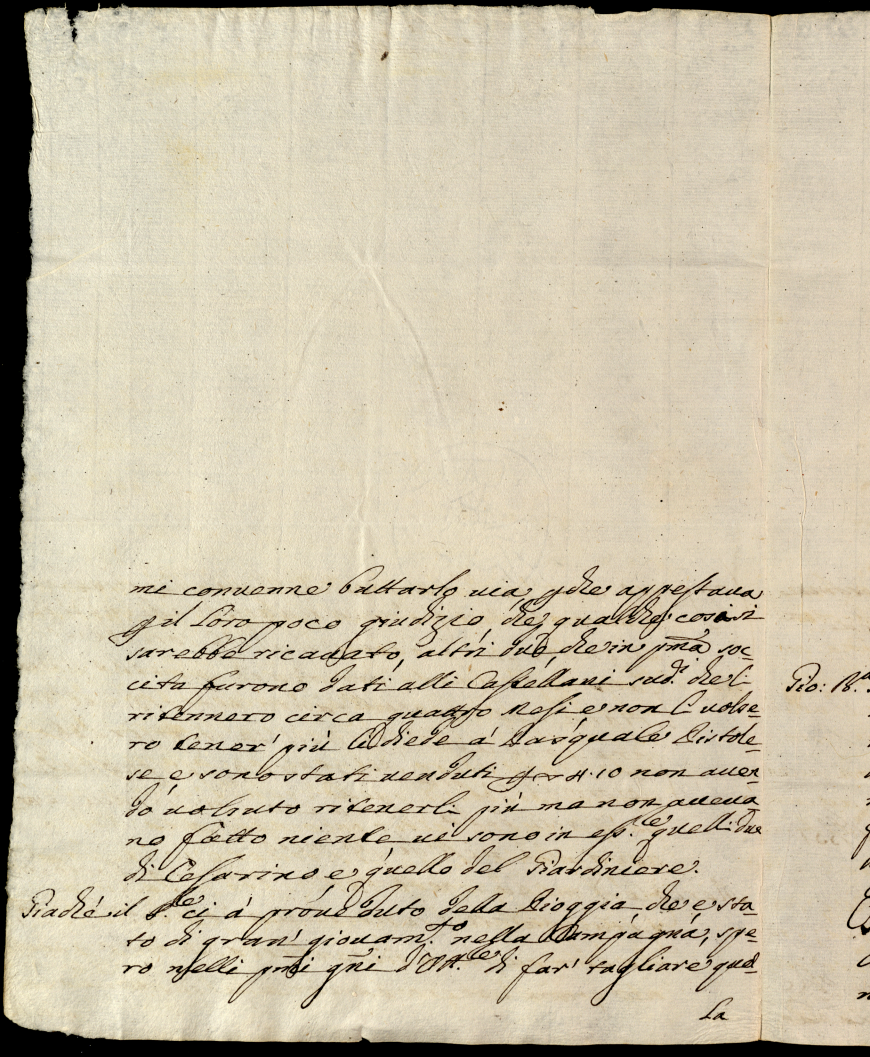 mi convenne buttarlo via, p che appestava
p il loro poco giudizio, che qualche cosa si
sarebbe ricavato, altri due che in pma soc-
cita furono dati alli Castellani sud.i che li
ritennero circa quattro Mesi e non li volse-
ro tener' più li diede á Pasquale Pistole-
se, e sono stati venduti 10 non aven-
do voluto ritenerli più ma non aveva
no fatto niente vi sono in ess.e quelli due
di Cesarino e quello del Giardiniere.
Giaché il S.re ci á proveduto della Pioggia che e sta-
to di gran' giovam.to nella Campagna, spe-
ro nelli pmi gni d'Ap.le di far' tagliare quel-
la
Gio: B.a